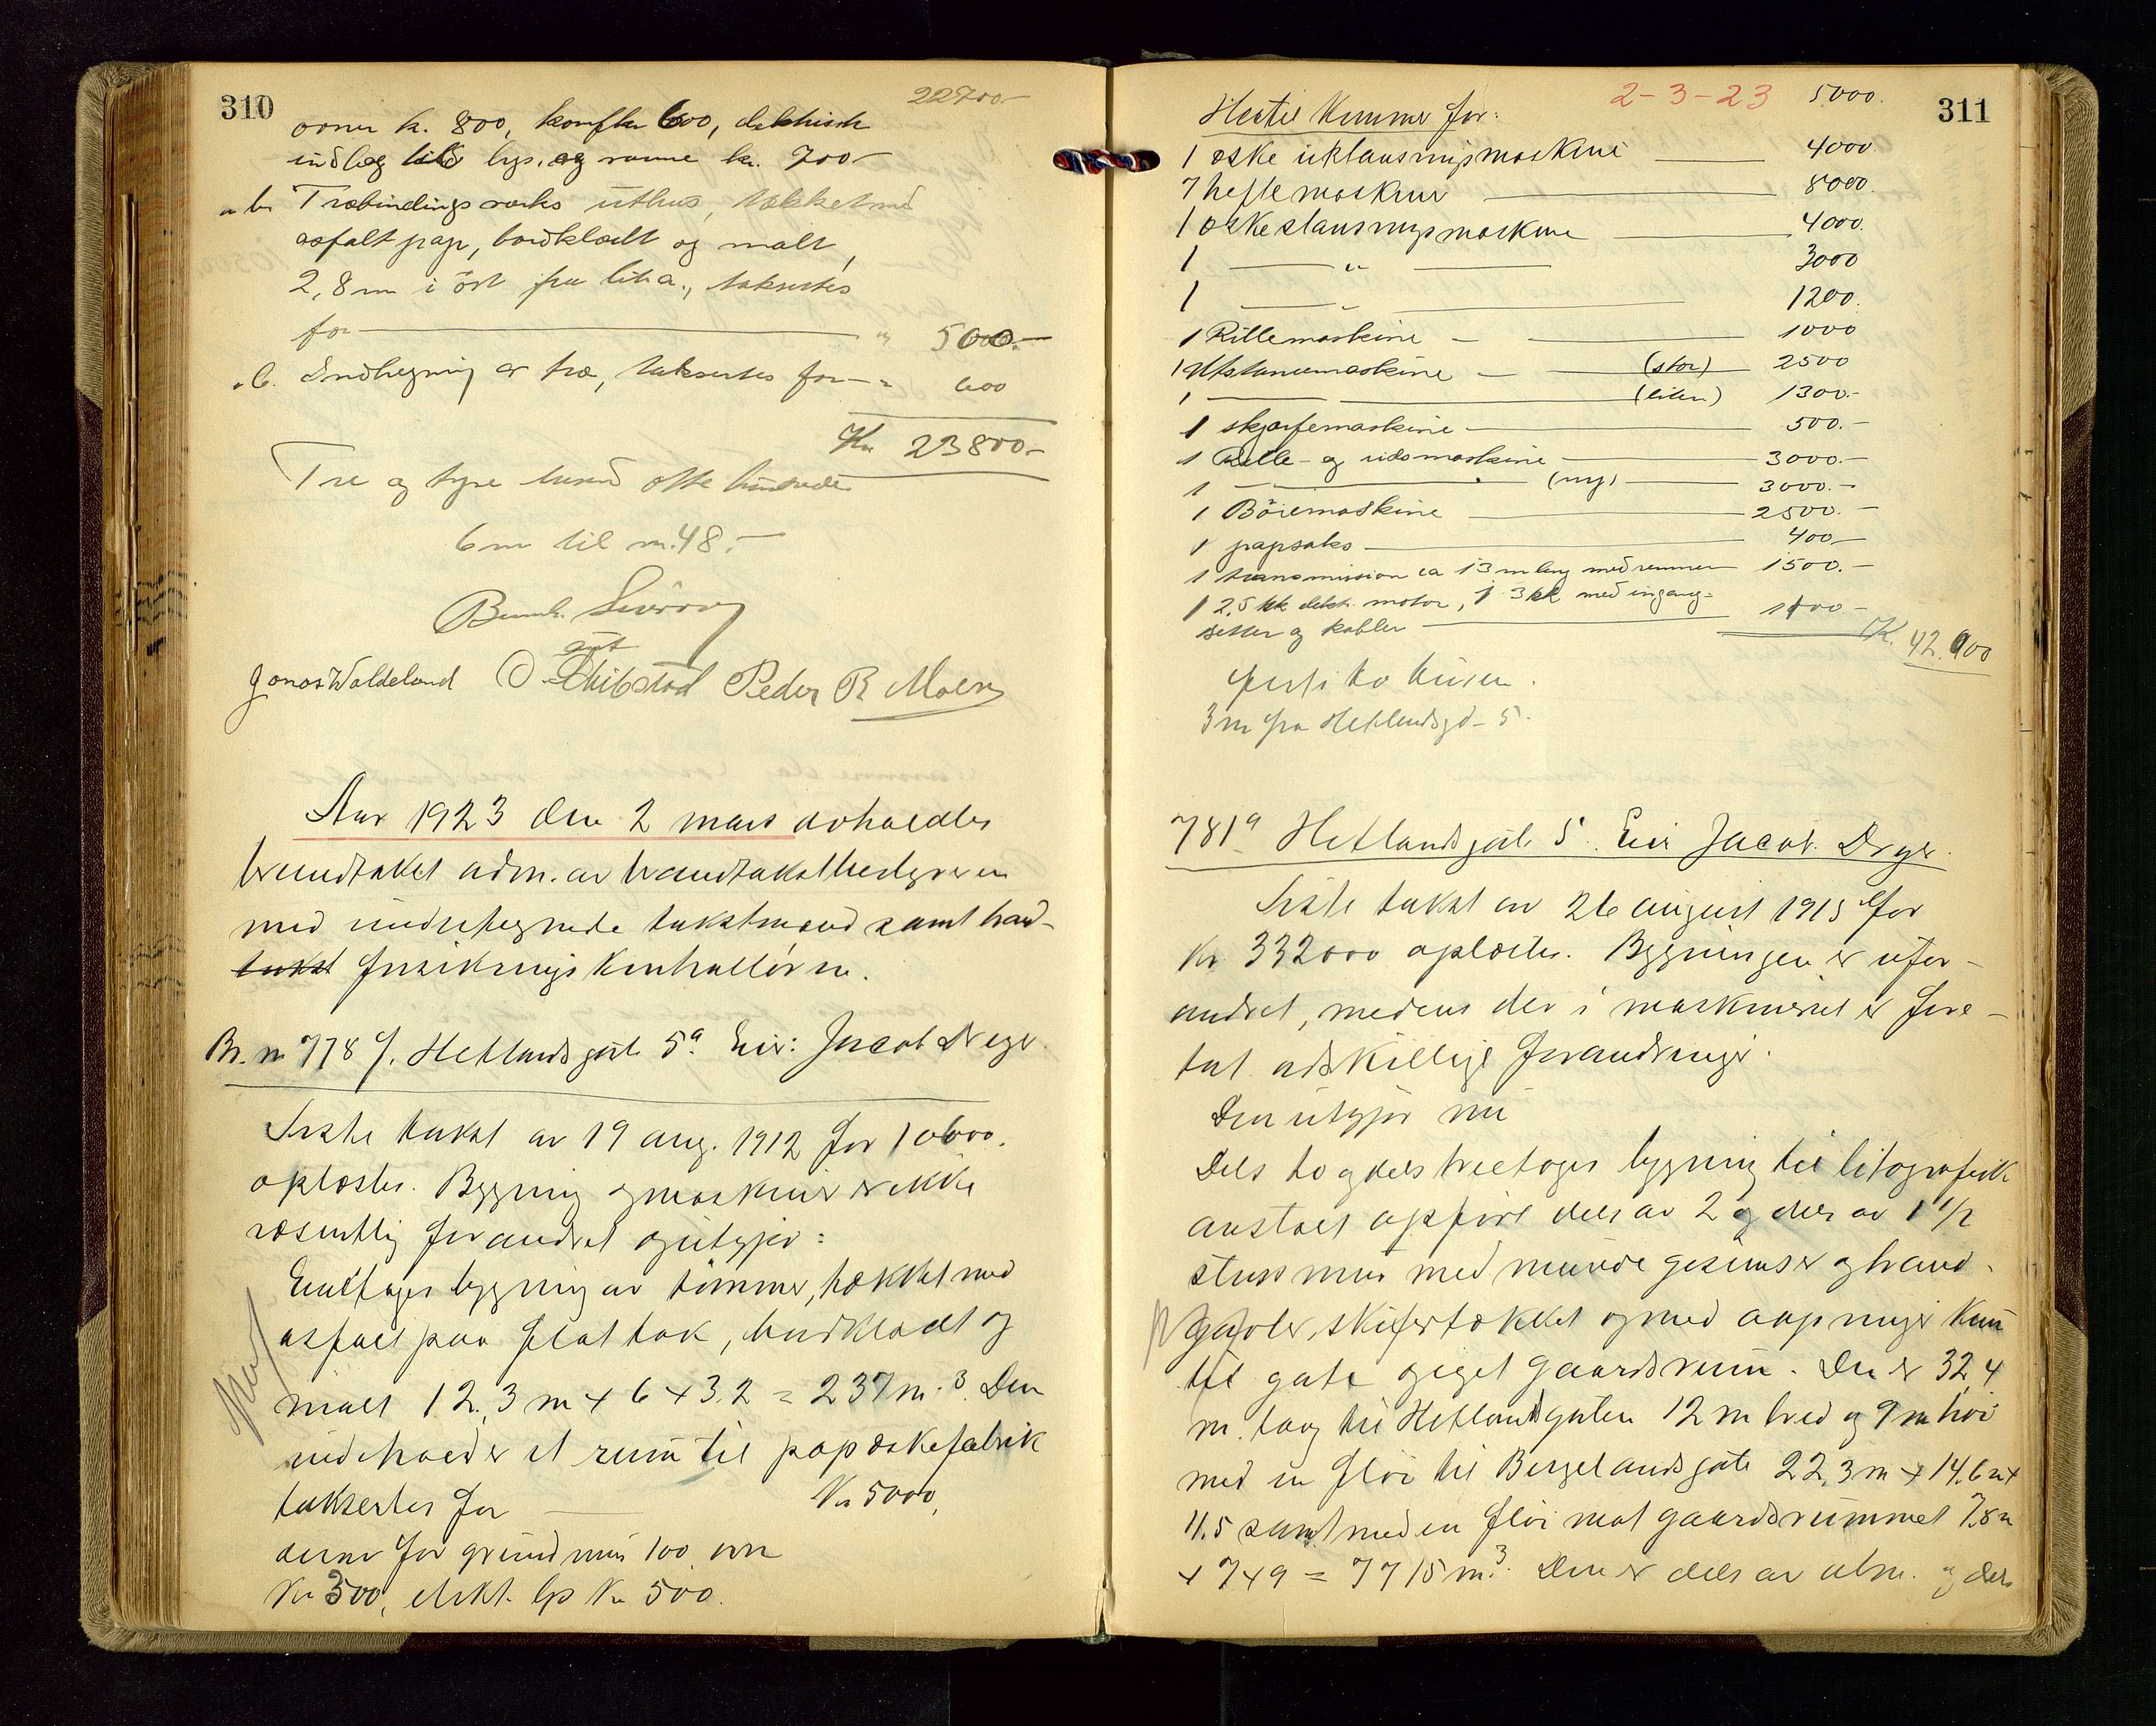 310
22700-
ovner kr. 800, komfur 600, elektrisk
indlæg til lys og varme kr. 700-
" b. Træbindingsverks uthus, tækket med
asfaltpap, bordklædt og malt,
2,8 m i öst fra lit a., taksertes
for " 500.-
" c. Indhegning av træ, taksertes for - " 600
Kr 23800.-
Tre og tyve tusind otte hundrede
6 m til nr. 48.-
Bernh.
Jonas Waldeland Peder R Moen
Aar 1923 den 2 mars avholdtes
brandtakst adm. av brandtakstbestyreren
med undertegnede takstmænd samt brand-
takst forsikringskontrolløren.
Br. nr 778 f. Hetlandsgate 5ª. Eier: Jacob Dreyer.
Siste takst av 19 aug. 1912 for 10600.
oplæstes. Bygning og maskiner er ikke
væsentlig forandret og utgjør:
Enetages bygning av tømmer, tækket med
asfalt paa flat tak, bordklædt og
malt 12,3 m + 6 + 3,2 = 237 m.³. Den
indeholder et rum til papæskefabrik
taksertes for Kr 5000,
derav for grundmur 100 ovn
Kr 300, elekt. lys Kr 500.
311
2-3-23 5000.
Hertil kommer for:
1 æske utstansningsmaskine 4000
7 heftemaskiner 8000.
1 æskestansningsmaskine 4000.
1 " 3000
1 " 1200.
1 Rillemaskine 1000
1 Utstansemaskine (stor) 2500
1 (liten) 1300.-
1 skjærfemaskine 500.-
1 Rille- og ridsmaskine 3000.-
1 " (ny) 3000.-
1 Böiemaskine 2500.-
1 papsaks 400.-
1 transmission ca 13 m lang med remmer 1500.-
1 2,5 hk elektr. motor, 1 3 hk med igang-
setter og kabler
K. 42.900
3 m fra Hetlandsgd. 5.
781ª Hetlandsgate 5. Eier Jacob Dreyer.
Siste takst av 26 august 1915 for
Kr 332000 oplæstes. Bygningen er ufor-
andret, medens der i maskineriet er fore-
tat adskillige forandringer.
Den utgjør nu
Dels to og dels treetages bygning til litografisk
anstalt opført dels av 2 og dels av 1 1/2
stens mur med murede gesimser og brand-
gavler, skifertækket og med aapninger kun
til gate og eget gaardsrum. Den er 32,4
m. lang til Hetlandsgaten 12 m bred og 9 m høi
med en fløi til Bergelandsgate 22,3 m + 14,6 m +
11.5 samt med en fløi mot gaardsrummet 7,8 m
+ 7 + 9 = 7715 m.³. Den er dels av alm. og dels